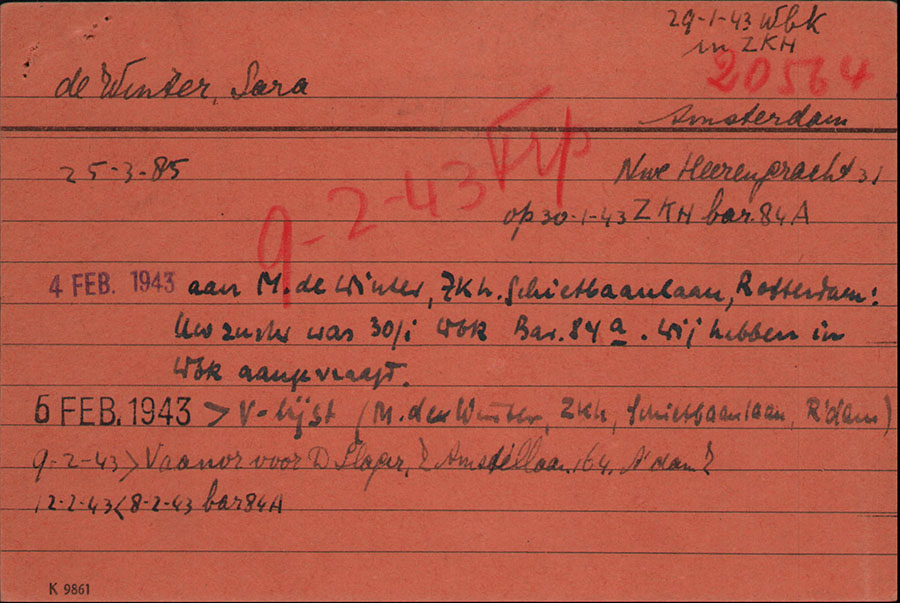 29-1-43 Wbk
in ZKH
20564
de Winter, Sara
Amsterdam
25-3-85
Nwe Heerengracht 31
9-2-43 Trp
op 30-1-43 ZKH bar. 84A
4 FEB. 1943 aan M. de Winter, ZKh. Schietbaanlaan, Rotterdam:
Uw zuster was 30/1 Wbk Bar. 84a. Wij hebben in
Wbk aangevraagd.
6 FEB. 1943 > V-lijst (M. de Winter, ZKh, Schietbaanlaan, R'dam)
9-2-43 > voor D Slager, Amstellaan 64, A'dam
12-2-43 < 8-2-43 bar 84A
K 9861